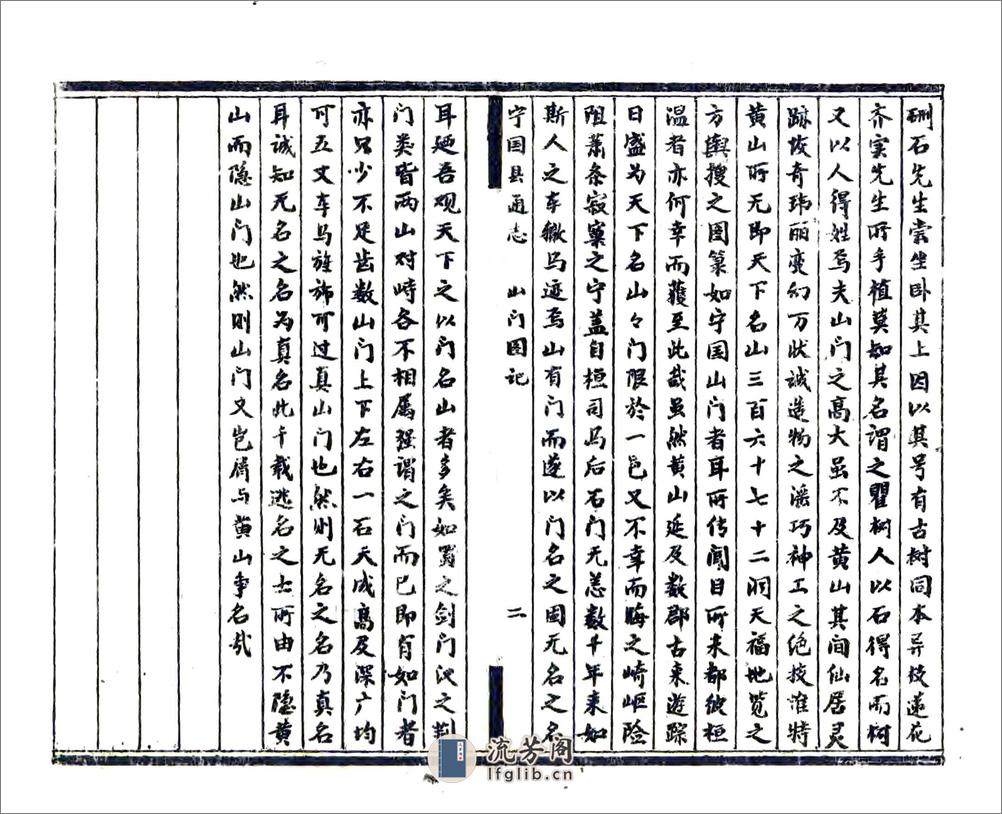 硎石先生尝坐卧其上因以其号有古树同本异枝莲花
齐实先生所手植莫知其名谓之瞿树人以石得名而树
又以人得姓焉夫山门之高大虽不及黄山其间仙居灵
跡恢奇玮丽变幻万状诚造物之滛巧神工之绝技淮特
黄山所无即天下名山三百六十七十二洞天福地览之
方舆搜之图箓如宁国山门者耳所传闻目所未都彼桓
温者亦何幸而蒦至此哉虽然黄山延及数郡古来遊踪
日盛为天下名山々门限於一邑又不幸而晦之崎岖险
阻萧条寂寞之宁盖自桓司马后石门无恙数千年来如
斯人之车辙马迹焉山有门而遂以门名之固无名之名
宁国县通志 山门图记 二
耳廼吾观天下之以门名山者多矣如蜀之剑门沈之荆
门类皆两山对峙各不相属强谓之门而已即有如门者
亦只少不足齿数山门上下左右一石天成高及深广均
可五丈车马旌旆可过真山门也然则无名之名乃真名
耳诚知无名之名为真名此千载逃名之士所由不隐黄
山而隐山门也然则山门又岂屑与黄山争名哉
流芳阁
lfglib.cn